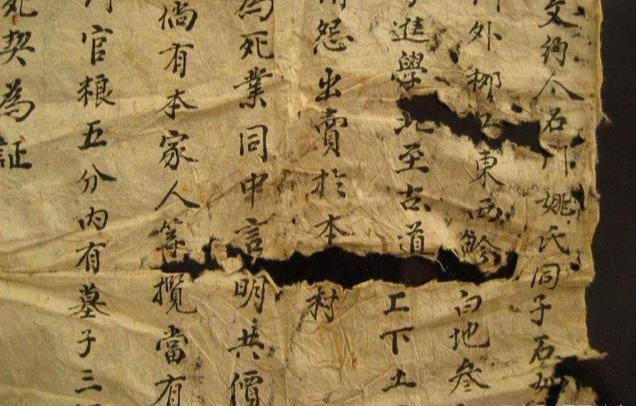 文約人石门姚氏同子石
外柳東西畛白地叁
進學北至古道工下土
情怨出賣於本村
為死業同中言明共價
倘有本家人等攬當有
官粮五分内有墓子三
死契為証